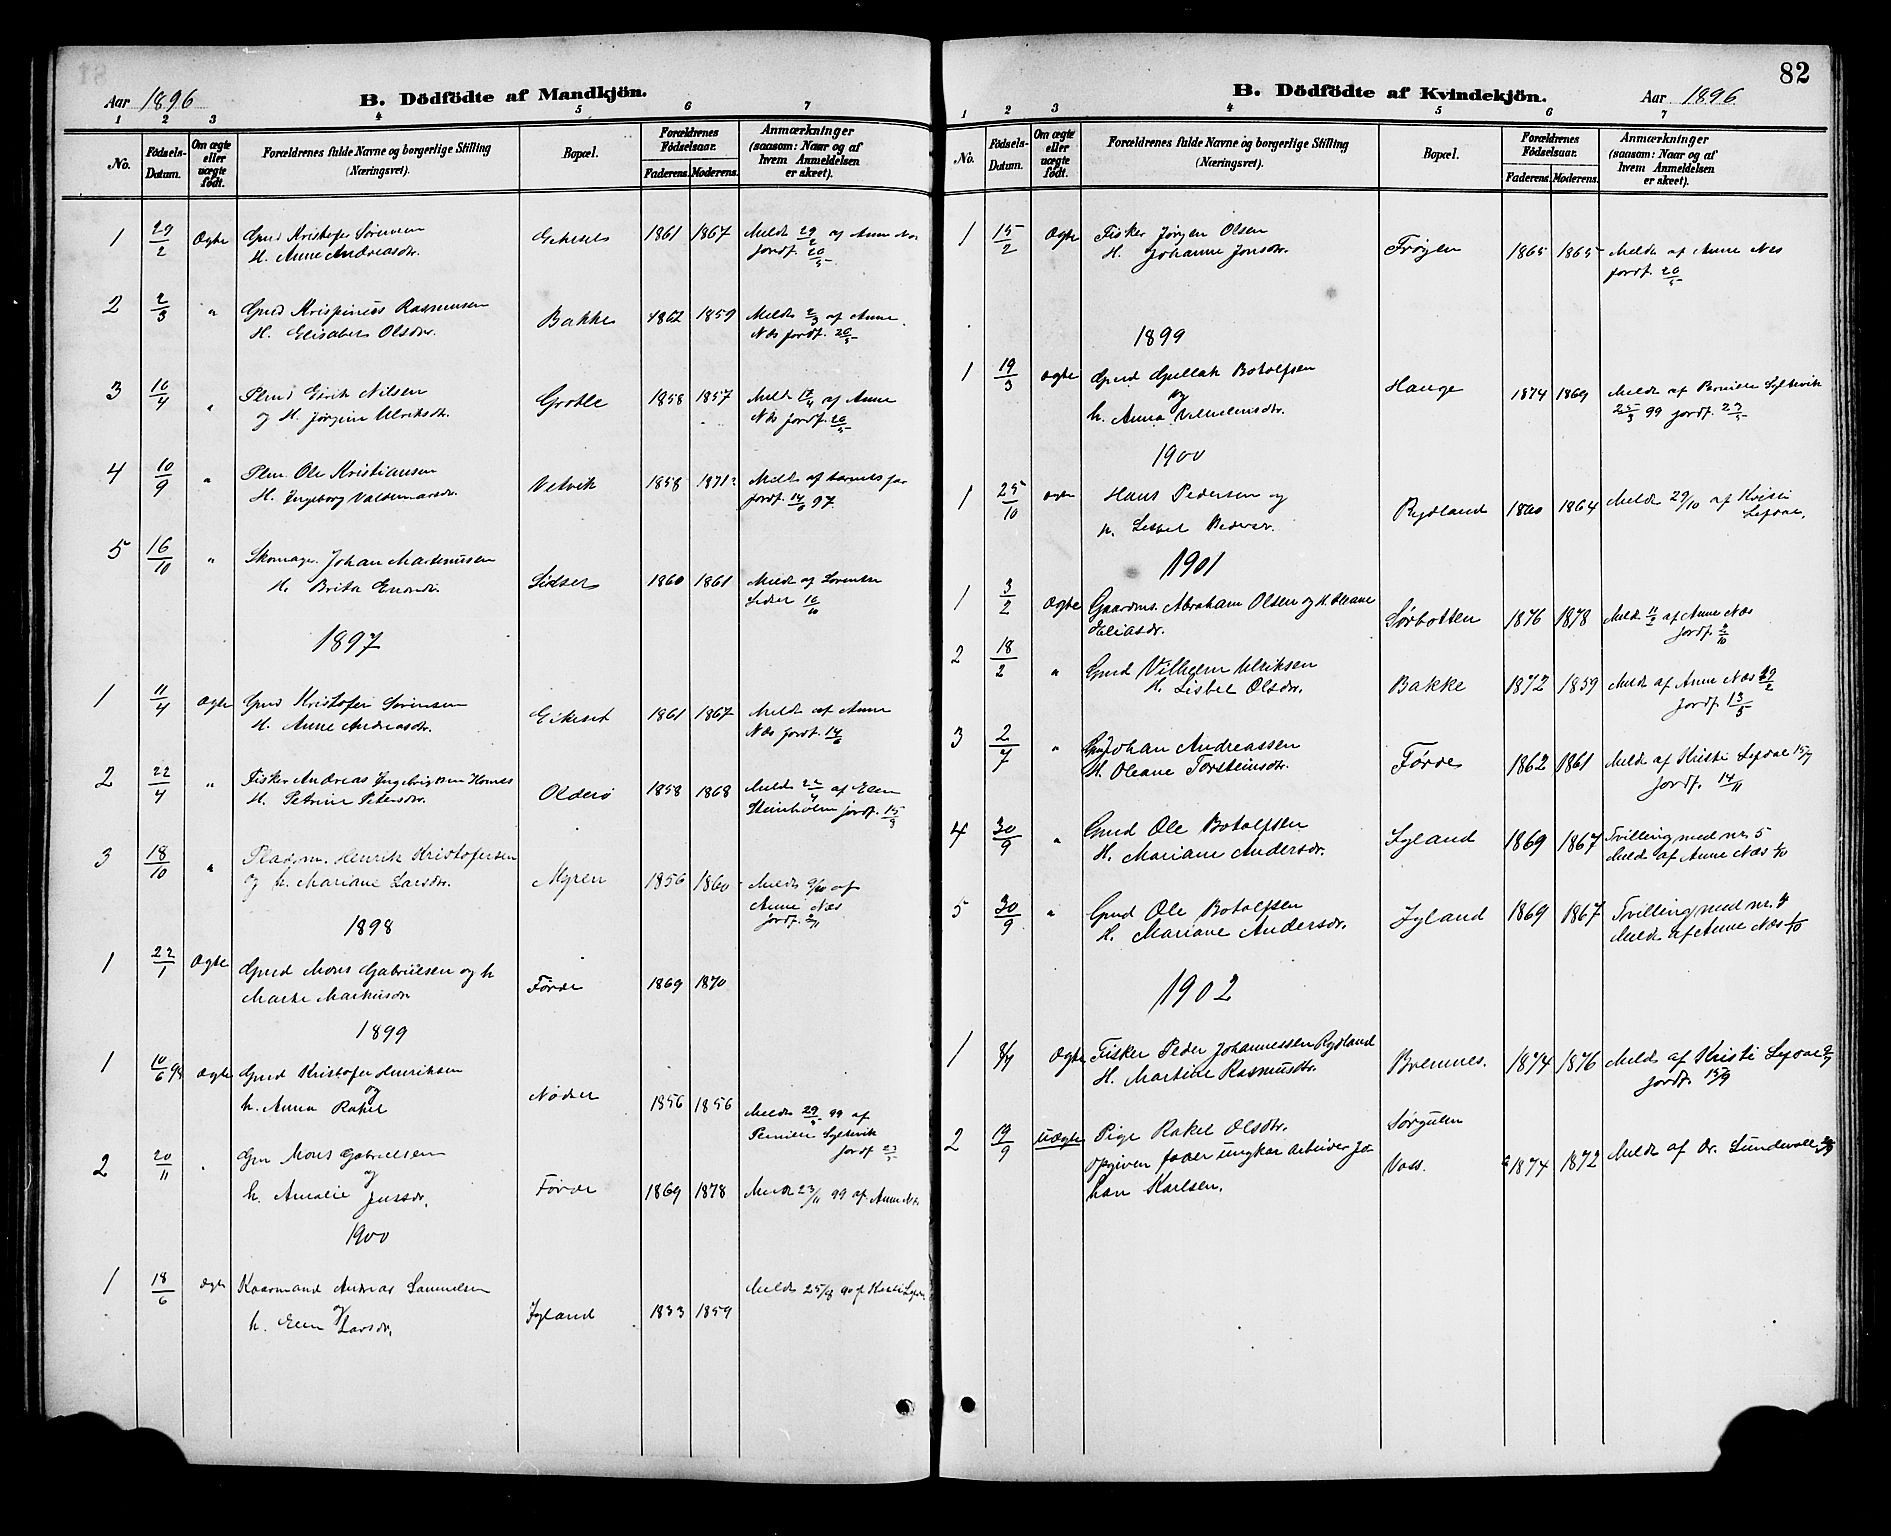 Aar 1896
B. Dödfödte af Mandkjön.
1 2 3 4 5 6 7
No.
Födsels-Datum.
Om ægte eller uægte födt.
Forældrenes fulde Navne og borgerlige Stilling (Næringsvei).
Bopæl.
Forældrenes Födselsaar.
Faderens. Moderens.
Anmærkninger (saasom: Naar og af hvem Anmeldelsen er skeet).
1 29/2 Ægte Gmd Kristofer Sørensen Eikeset 1861 1867 Meldt 29/2 af Anne Næs
H. Anne Andreasdr. jordf. 20/5
2 2/3 " Gmd Krispinus Rasmussen Bakke 1862 1859 Meldt 2/3 af Anne
H. Elisabet Olsdr. Næs jordf. 20/5
3 16/4 " Plmd Eirik Nilsen Grotle 1858 1857 Meldt 17/4 af Anne
og H. Jørgine Ulriksdr. Næs jordf. 20/5
4 10/9 " Plm. Ole Kristiansen Vetvik 1858 1871? Meldt af barnets far
H. Ingeborg Valdemarsdr. jordf. 14/6 97.
5 16/10 " Skomager Johan Martinussen Lidset 1860 1861 Meldt af Lorentse
H. Brita Lidset 16/10
1897
1 11/4 Ægte Gmd Kristofer Sørensen Eikeset 1861 1867 Meldt af Anne
H. Anne Andreasdr. Næs jordf. 14/6
2 22/4 " Fisker Andreas Ingebrigtsen Hornes Olderø 1858 1868 Meldt 22/4 af Elen
H. Petrine Petersdr. Steinholm jordf. 15/9
3 18/10 " Pladsm. Henrik Kristofersen Myren 1856 1860 Meldt af
og h. Mariane Larsdr. Anne Næs
jordf.
1898
1 22/1 Ægte Gmd Mons Gabrielsen og h Førde 1869 1870
Marte Markusdr
1899
1 10/6 98 Ægte Gmd Kristofer Henriksen Nødset 1856 1856
og
h. Anna Rakel Meldt 29/5 99 af
Pernille Sylkevik
jordf 23/5
2 20/11 " Gm Mons Gabrielsen Førde 1869 1878 Meldt 23/11 99 af Anne Næs
og
h. Amalie Jensdr.
1900
1 18/6 Ægte Kaarmand Andreas Samuelsen Igland 1833 1859 Meldt 25/8 90 af Kristi Lefdal
og
h. Elen Larsdr.
82
B. Dödfödte af Kvindekjön.
Aar 1896
1 2 3 4 5 6 7
No.
Födsels-Datum.
Om ægte eller uægte födt.
Forældrenes fulde Navne og borgerlige Stilling (Næringsvei).
Bopæl.
Forældrenes Födselsaar.
Faderens. Moderens.
Anmærkninger (saasom: Naar og af hvem Anmeldelsen er skeet).
1 15/2 Ægte Fisker Jørgen Olsen Frøyen 1865 1865 Meldt af Anne Næs
H. Johanne Jonsdr. jordf. 20/5
1899
1 19/3 Ægte Gmd Gullak Botolfsen Hauge 1874 1869 Meldt af Pernille Sylkevik
og 25/3 99 jordf. 23/5
h. Anna Vilhelmsdr.
1900
1 25/10 Ægte Hans Pedersen og Rydland 1860 1864 Meldt 29/10 af Kristi
h. Lisbet Pedersdr. Lefdal.
1901
1 3/2 Ægte Gaardms. Abraham Olsen og H. Oleane Sørbotten 1876 1878 Meldt 11/2 af Anne Næs
Eliasdr. jordf.
2 18/2 " Gmd Vilhelm Ulriksen Bakke 1872 1859 Meldt af Anne Næs
H. Lisbet Olsdr. jordf. 13/5
3 2/7 " Gmd Johan Andreassen Førde 1862 1861 Meldt af Kristi Lefdal 15/7
H. Oleane Torsteinsdr. jordf. 14/11
4 30/9 " Gmd Ole Botolfsen Igland 1869 1867 Tvilling med nr. 5
H. Mariane Andersdr. Meldt af Anne Næs 1/10
5 30/9 " Gmd Ole Botolfsen Igland 1869 1867 Tvilling med nr. 4
H. Mariane Andersdr. Meldt af Anne Næs 1/10
1902
1 8/7 Ægte Fisker Peder Johannessen Rydland Bremnes. 1874 1876 Meldt af Kristi Lefdal
H. Martine Rasmusdr. jordf. 15/9
2 19/9 Uægte Pige Rakel Olsdr. Sørgulen
opgiven fader ungkar arbeider Jo Voss. 1874 1872 Meldt af Dr. Sundevall
han Karlsen.